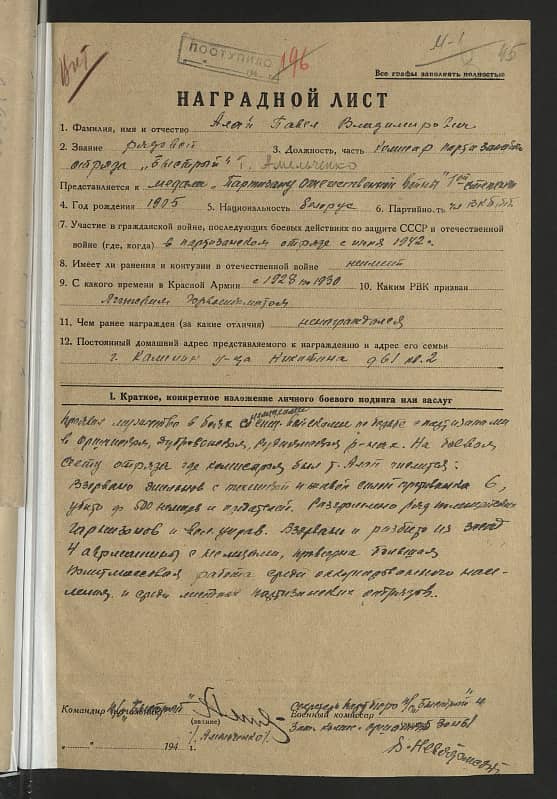 Учт
ПОСТУПИЛО
196
М-1
45
Все графы заполнять полностью
НАГРАДНОЙ ЛИСТ
1. Фамилия, имя и отчество Алай Павел Владимирович
2. Звание рядовой 3. Должность, часть Комиссар
отряда „Быстрый" т. Амельченко
Представляется к медали „Партизану отечественной войны" 1ой степени
4. Год рождения 1905 5. Национальность белорус 6. Партийность чл ВКП/б/
7. Участие в гражданской войне, последующих боевых действиях по защите СССР и отечественной
войне (где, когда) в партизанском отряде с июня 1942 г.
8. Имеет ли ранения и контузии в отечественной войне неимеет
9. С какого времени в Красной Армии с 1928 по 1930 10. Каким РВК призван
11. Чем ранее награжден (за какие отличия) ненаграждался
12. Постоянный домашний адрес представляемого к награждению и адрес его семьи
г. Калинин у-ца Никитина д61 кв. 2
I. Краткое, конкретное изложение личного боевого подвига или заслуг
Проявил мужество в боях с немецкими войсками по борьбе с партизанами
в Оршанском, Дубровенском, р-нах. На боевом
счету отряда где комиссаром был т. Алай числится:
Взорвано эшелонов с техникой и живой силой противника 6,
убито до 500 немцев и предателей. Разгромлено ряд полицейских
гарнизонов и вол. управ. Взорвано и разбито из засад
4 автомашины с немцами, проведена большая
работа среди оккупированного насе-
ления и среди партизанских отрядов.
Командир „Быстрый"
(звание)
/Амельченко/
Военный комиссар
„ " 194 г.